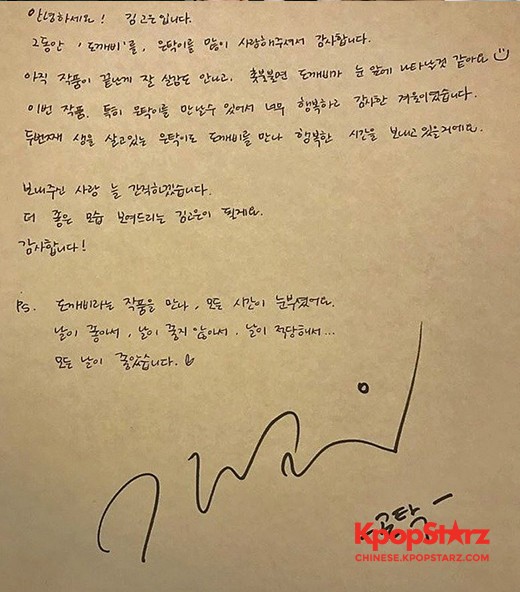 안녕하세요! 김고은입니다.
그동안 '도깨비'를, 은탁이를 많이 사랑해주셔서 감사합니다.
아직 작품이 끝난게 잘 실감도 안나고, 촛불불면 도깨비가 눈 앞에 나타날것 같아요
이번 작품. 특히 은탁이를 만날수 있어서 너무 행복하고 감사한 겨울이였습니다.
두번째 생을 살고있는 은탁이도 도깨비를 만나 행복한 시간을 보내고 있을거예요.
보내주신 사랑 늘 간직하겠습니다.
더 좋은 모습 보여드리는 김고은이 될게요.
감사합니다!
PS. 도깨비라는 작품을 만나, 모든 시간이 눈부셨어요.
날이 좋아서, 날이 좋지 않아서, 날이 적당해서...
모든 날이 좋았습니다.
KpopStarz
CHINESE.KPOPSTARZ.COM